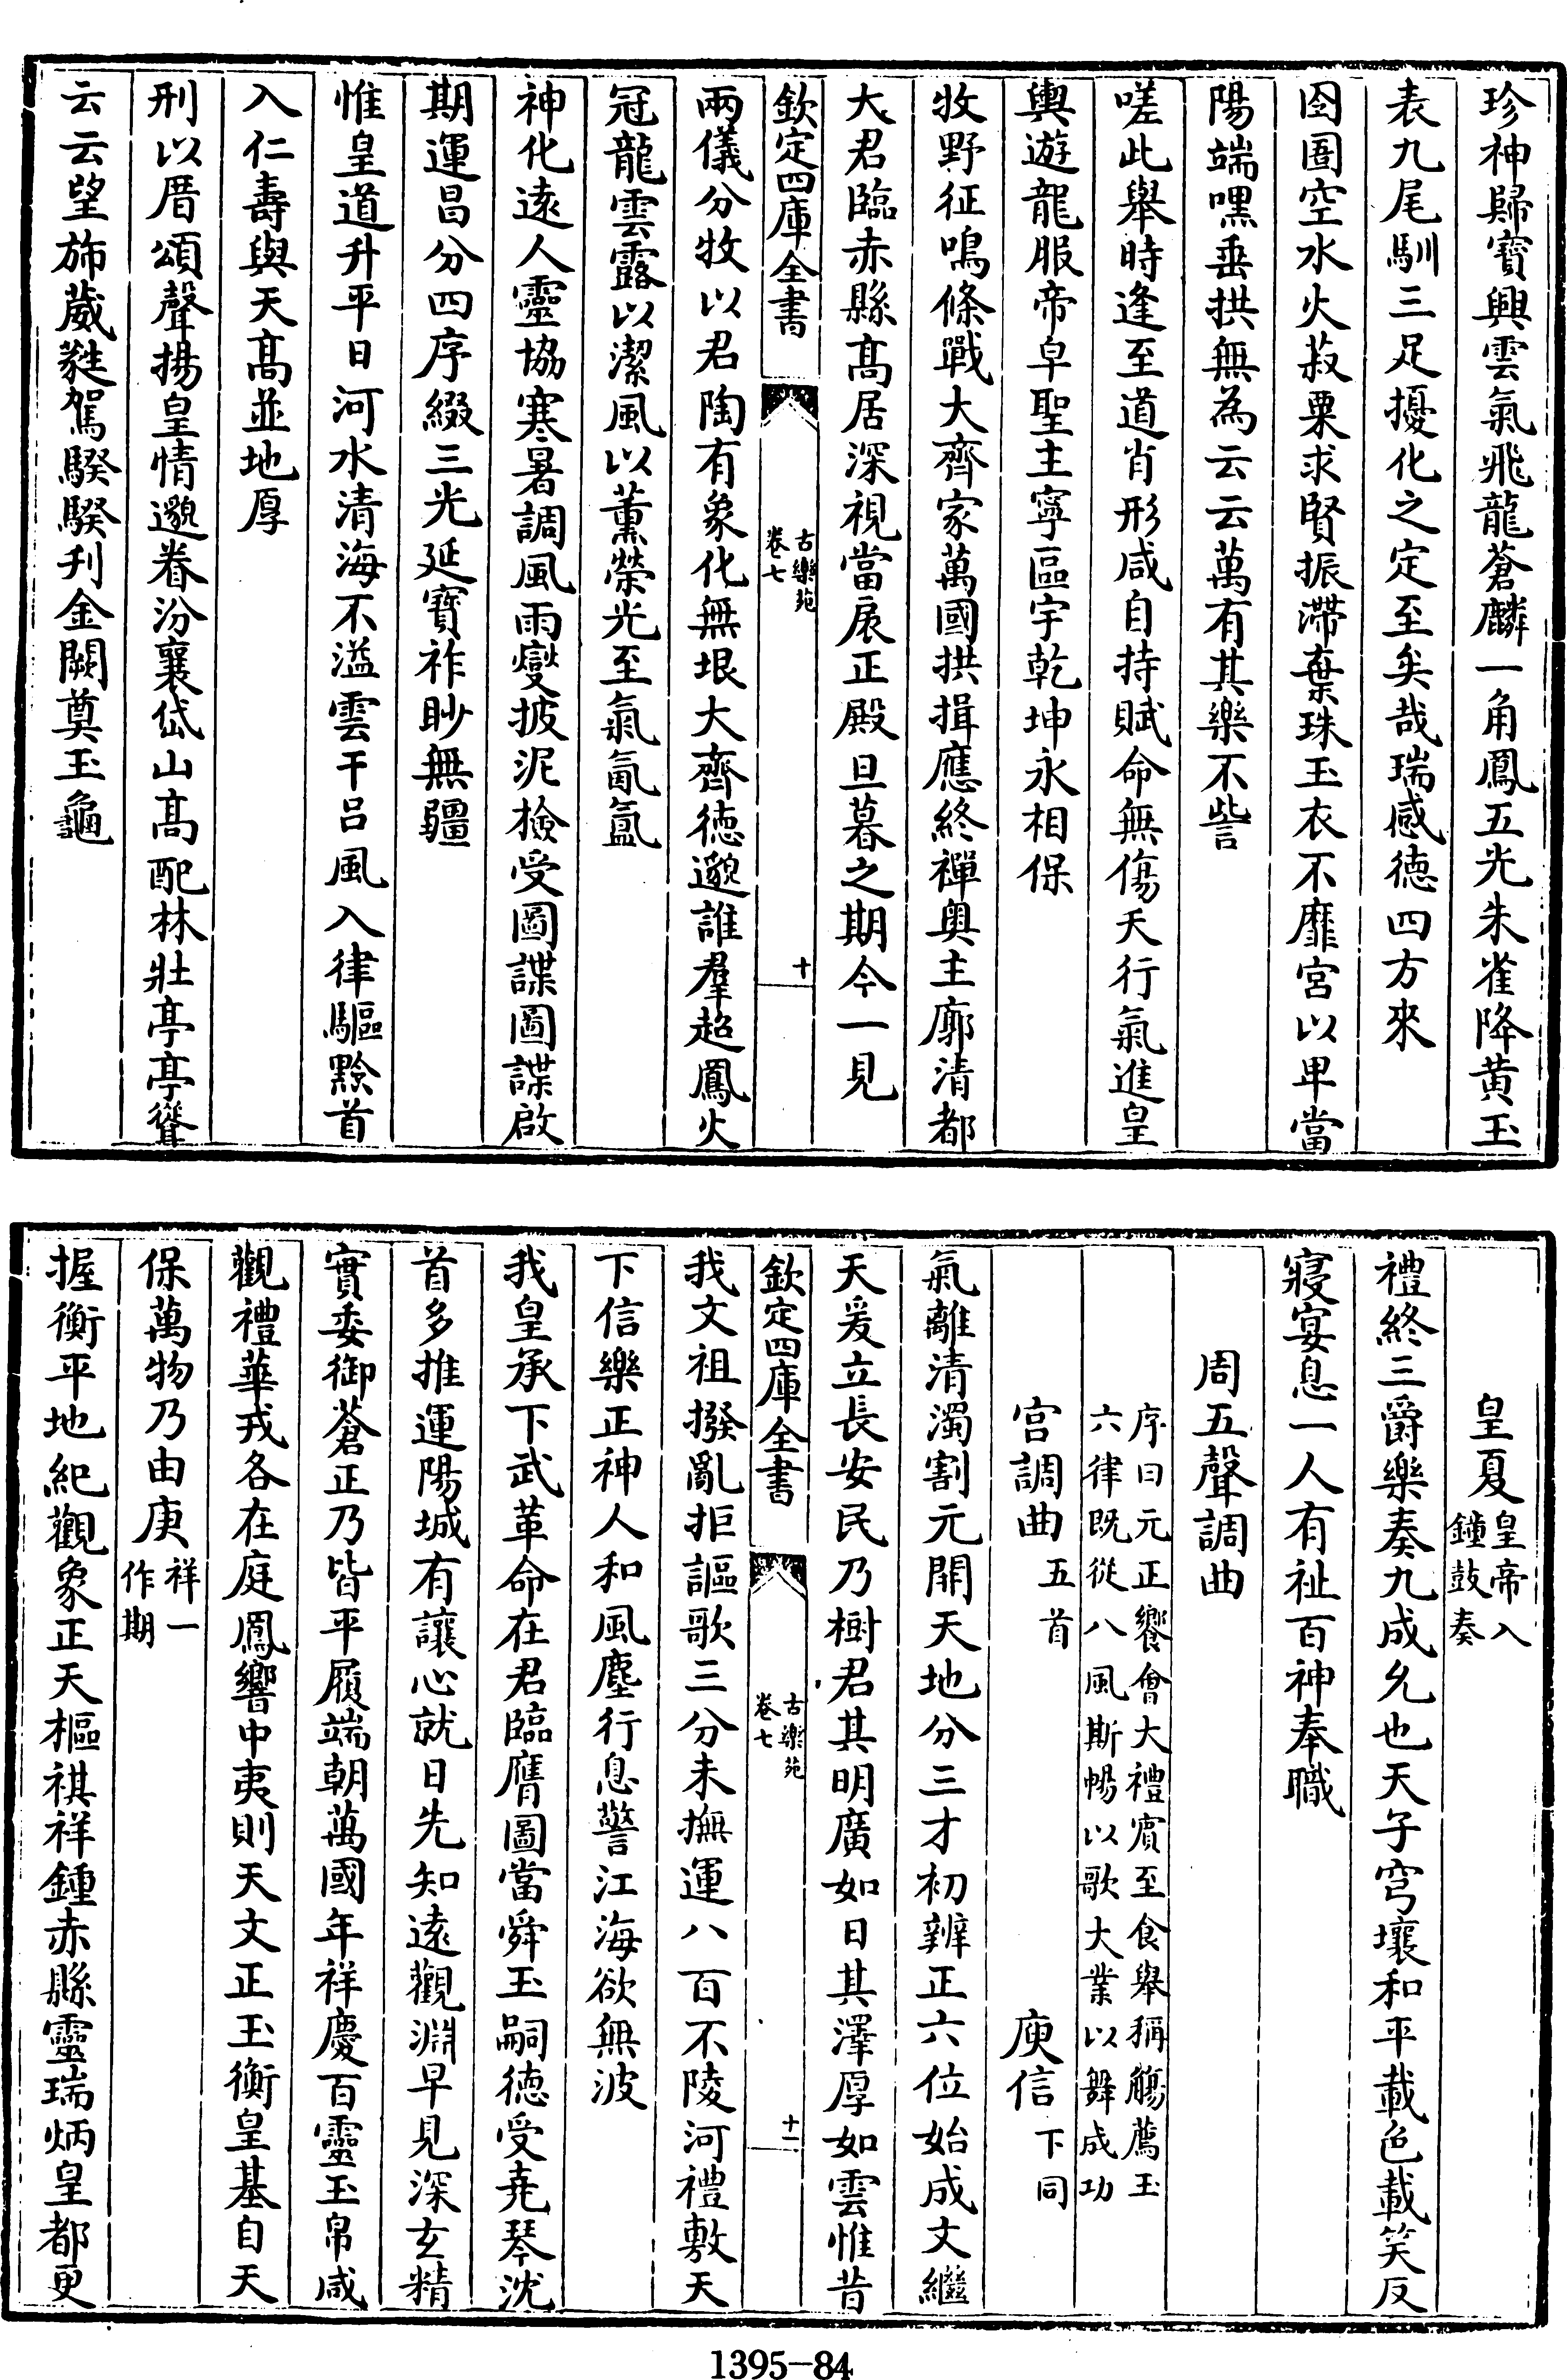 珍神歸寶興雲氣飛龍蒼麟一角鳳五光朱雀降黄玉
表九尾馴三足擾化之定至矣哉瑞感徳四方來
囹圄空水火菽粟求賢振滯棄珠玉衣不靡宮以卑當
陽端嘿垂拱無為云云萬有其樂不訾
嗟此舉時逢至道肖形咸自持賦命無傷天行氣進皇
輿遊龍服帝皁聖主寧區宇乾坤永相保
牧野征鳴條戰大齊家萬國拱揖應終禪奥主廓清都
大君臨赤縣髙居深視當扆正殿旦暮之期今一見
欽定四庫全書
古樂苑
卷七
十
兩儀分牧以君陶有象化無垠大齊徳邈誰羣超鳳火
冠龍雲露以潔風以薰榮光至氣氤氲
神化逺人靈協寒暑調風雨燮披泥檢受圖諜圖諜啟
期運昌分四序綴三光延寶祚眇無疆
惟皇道升平日河水清海不溢雲干吕風入律驅黔首
入仁壽與天髙並地厚
刑以厝頌聲揚皇情邈眷汾襄岱山髙配林壯亭亭聳
云云望斾葳蕤駕騤騤刋金闕奠玉龜
皇夏皇帝入
鐘鼓奏
禮終三爵樂奏九成允也天子穹壤和平載色載笑反
寢宴息一人有祉百神奉職
周五聲調曲
序曰元正饗會大禮賔至食舉稱觴薦玉
六律既從八風斯暢以歌大業以舞成功
宫調曲五首 庾信下同
氣離清濁割元開天地分三才初辨正六位始成文繼
天爰立長安民乃樹君其明廣如日其澤厚如雲惟昔
欽定四庫全書
古樂苑
卷七
十一
我文祖撥亂拒謳歌三分未撫運八百不陵河禮敷天
下信樂正神人和風塵行息警江海欲無波
我皇承下武革命在君臨膺圖當舜玉嗣徳受堯琴沈
首多推運陽城有讓心就日先知逺觀淵早見深玄精
實委御蒼正乃皆平履端朝萬國年祥慶百靈玉帛咸
觀禮華戎各在庭鳳響中夷則天文正玉衡皇基自天
保萬物乃由庚祥一
作期
握衡平地紀觀象正天樞祺祥鍾赤縣靈瑞炳皇都更
1395-84